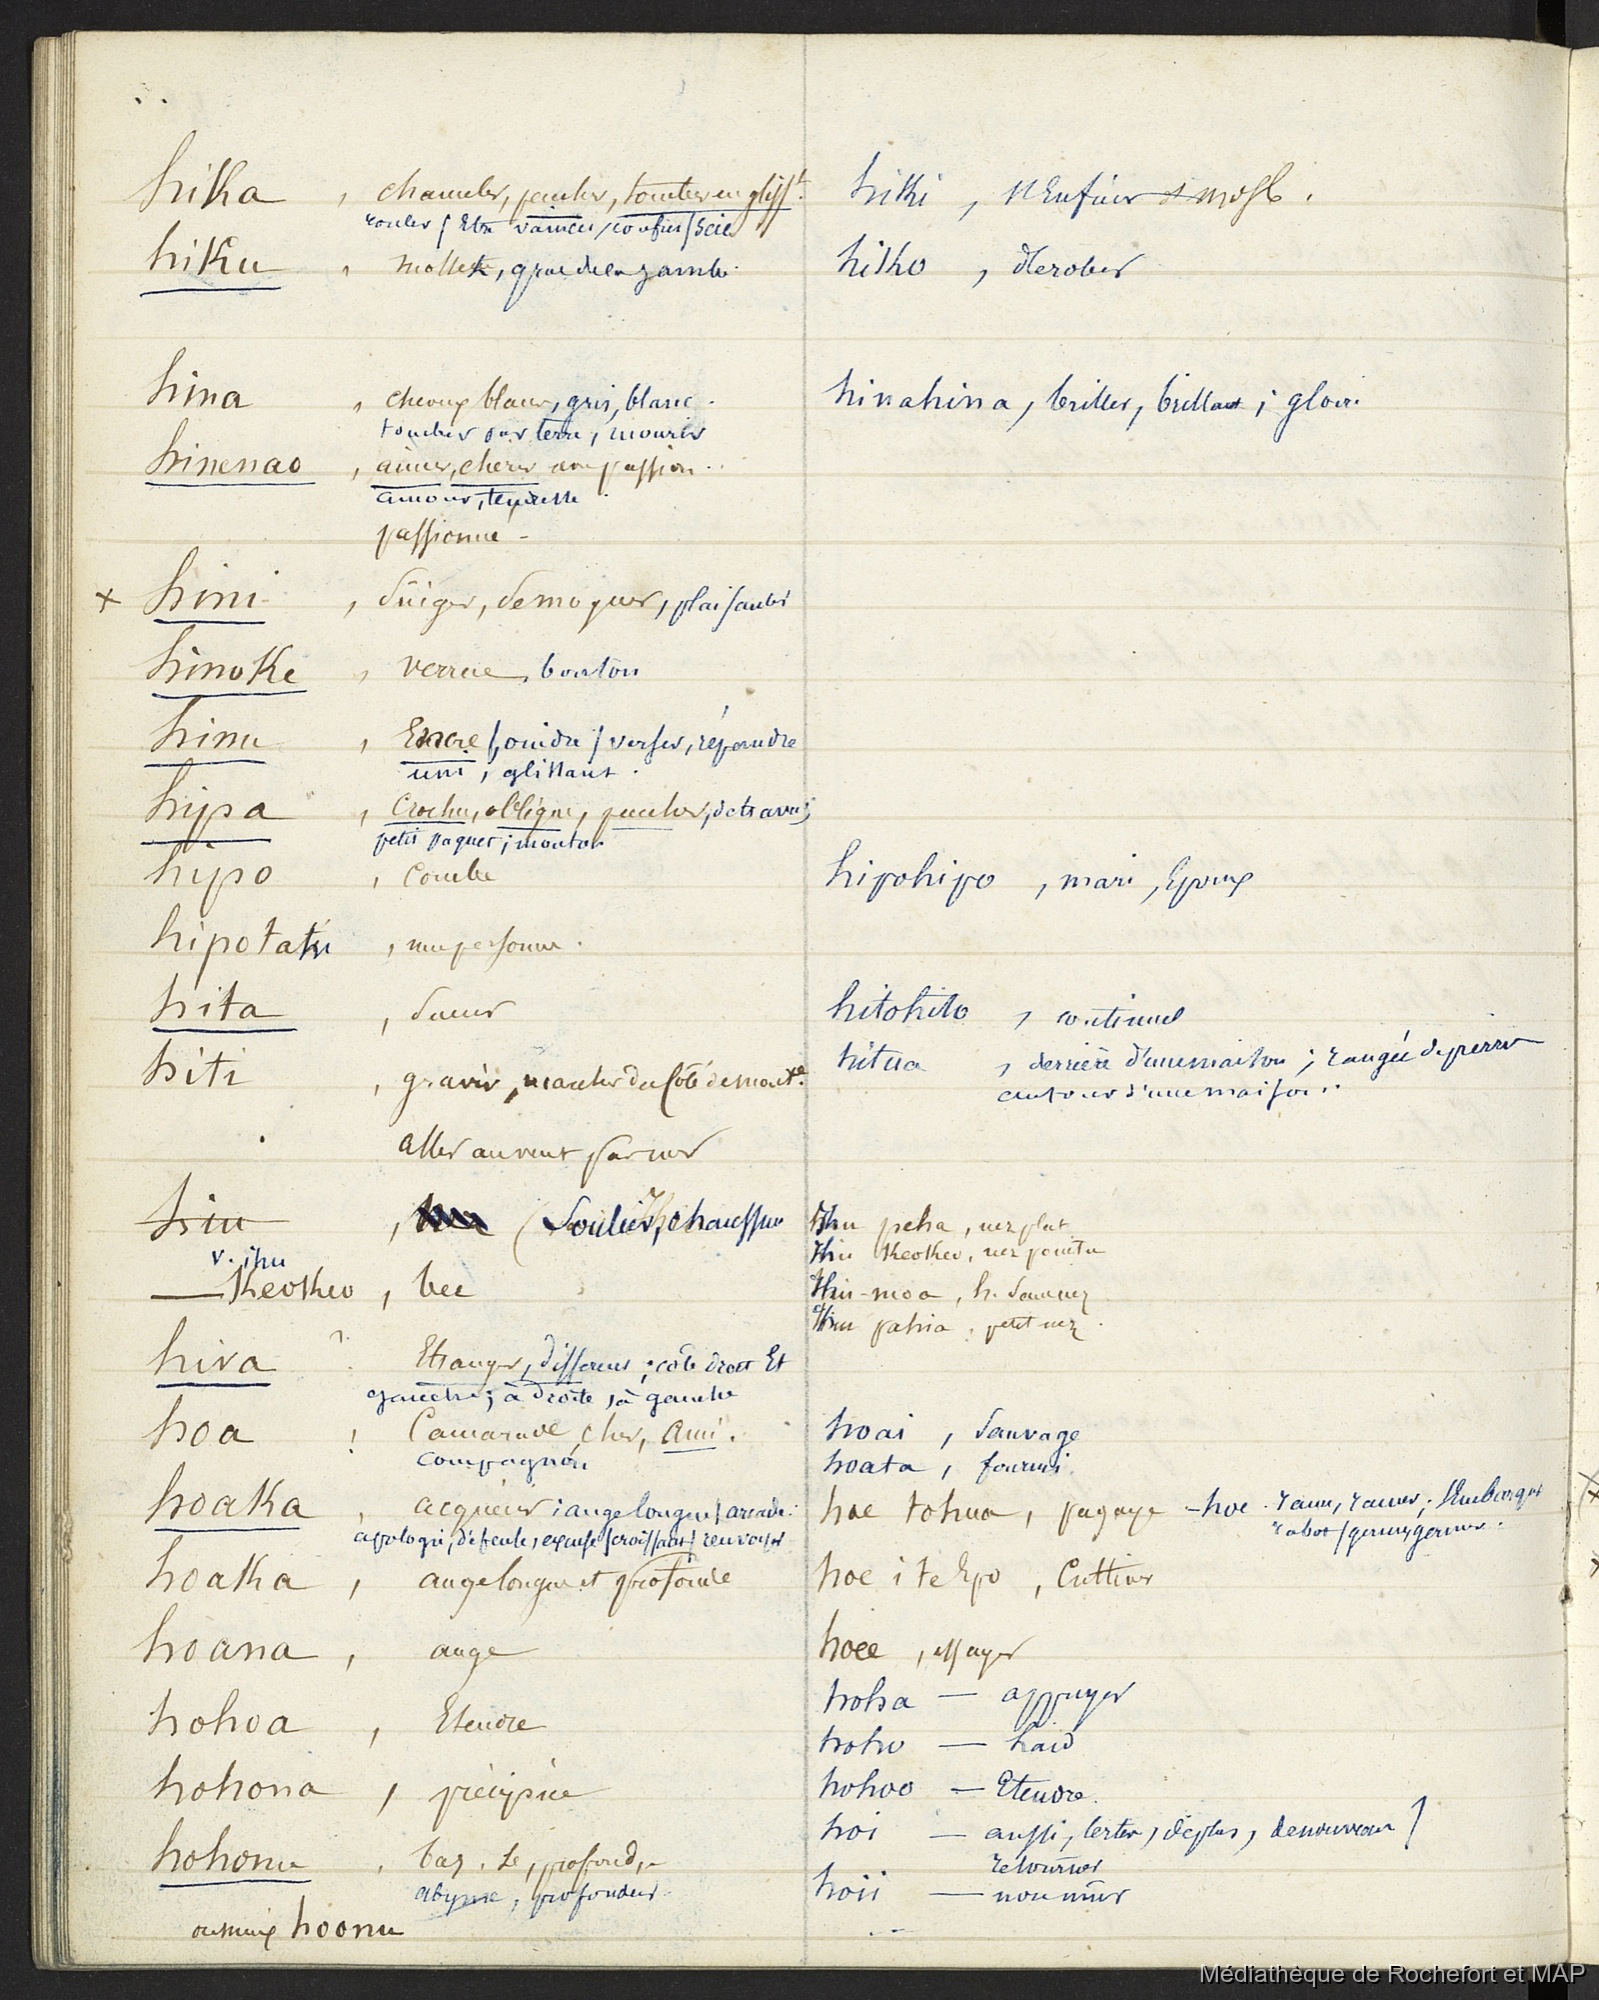 hika , chanceler, pencher, tomber en gliss.t
rouler / Etre vaincu, confus / scie
hiku , mollet, gras de la jambe.
hina , cheveux blancs, gris, blanc.
tomber par terre, mourir
hinenao , aimer, cherir compassion..
amour, tendresse.
passionné -
x hini , se moquer, plaisanter
hinoke , verrue, bouton
hinu , Encre /, oindre / verser, répandre
uni, glissant.
hipa , Crochu, oblique, pencher,
petit paquet ; mouton
hipo , Courbe
hipotaku ,
hita , Soeur
hiti , gravir, marcher du Côté de
aller au vent par mer
hiu , ( Soulier, chaussure
v. ihu
— Keokeo , bec
hiva ? Etranger, different ; côté droit Et
gauche ; à droite, à gauche
hoa ! Camarade, cher, ami.
Compagnon
hoaka , acquérir ; auge longue / arcade.
apologie, défense, excuse / croissant / renvoyer
hoaka , auge longue et profonde
hoana , auge
hohoa , Etendre
hohona , précipice
hohonu , bas. se, profond, e
abyme, profondeur.
ou mieux hoonu
hiki , s'Enfuir
hiko , dérober
hinahina, briller, brillant ; gloire
hipohipo , mari, Epoux
hitohito , continuel
hitua , derrière d'une maison ; rangée de pierres
autour d'une maison..
Ihu peha, nez plat
Ihu Keokeo, nez pointu
Ihu-moa, h. sans nez
Ihu pahia, petit nez.
hoai , Sauvage
hoata , fourmi
hoe tohua , pagaye - hoe. rame, ramer ; s'Embarquer
rabot / germe, germer.
hoe i te Epo , Cultiver
hoee , essayer
hoha — appuyer
hoho — laid
hohoo — Etendre.
hoi — aussi, certes, de plus, de nouveau
retourner
hoii — non mûr
Médiathèque de Rochefort et MAP